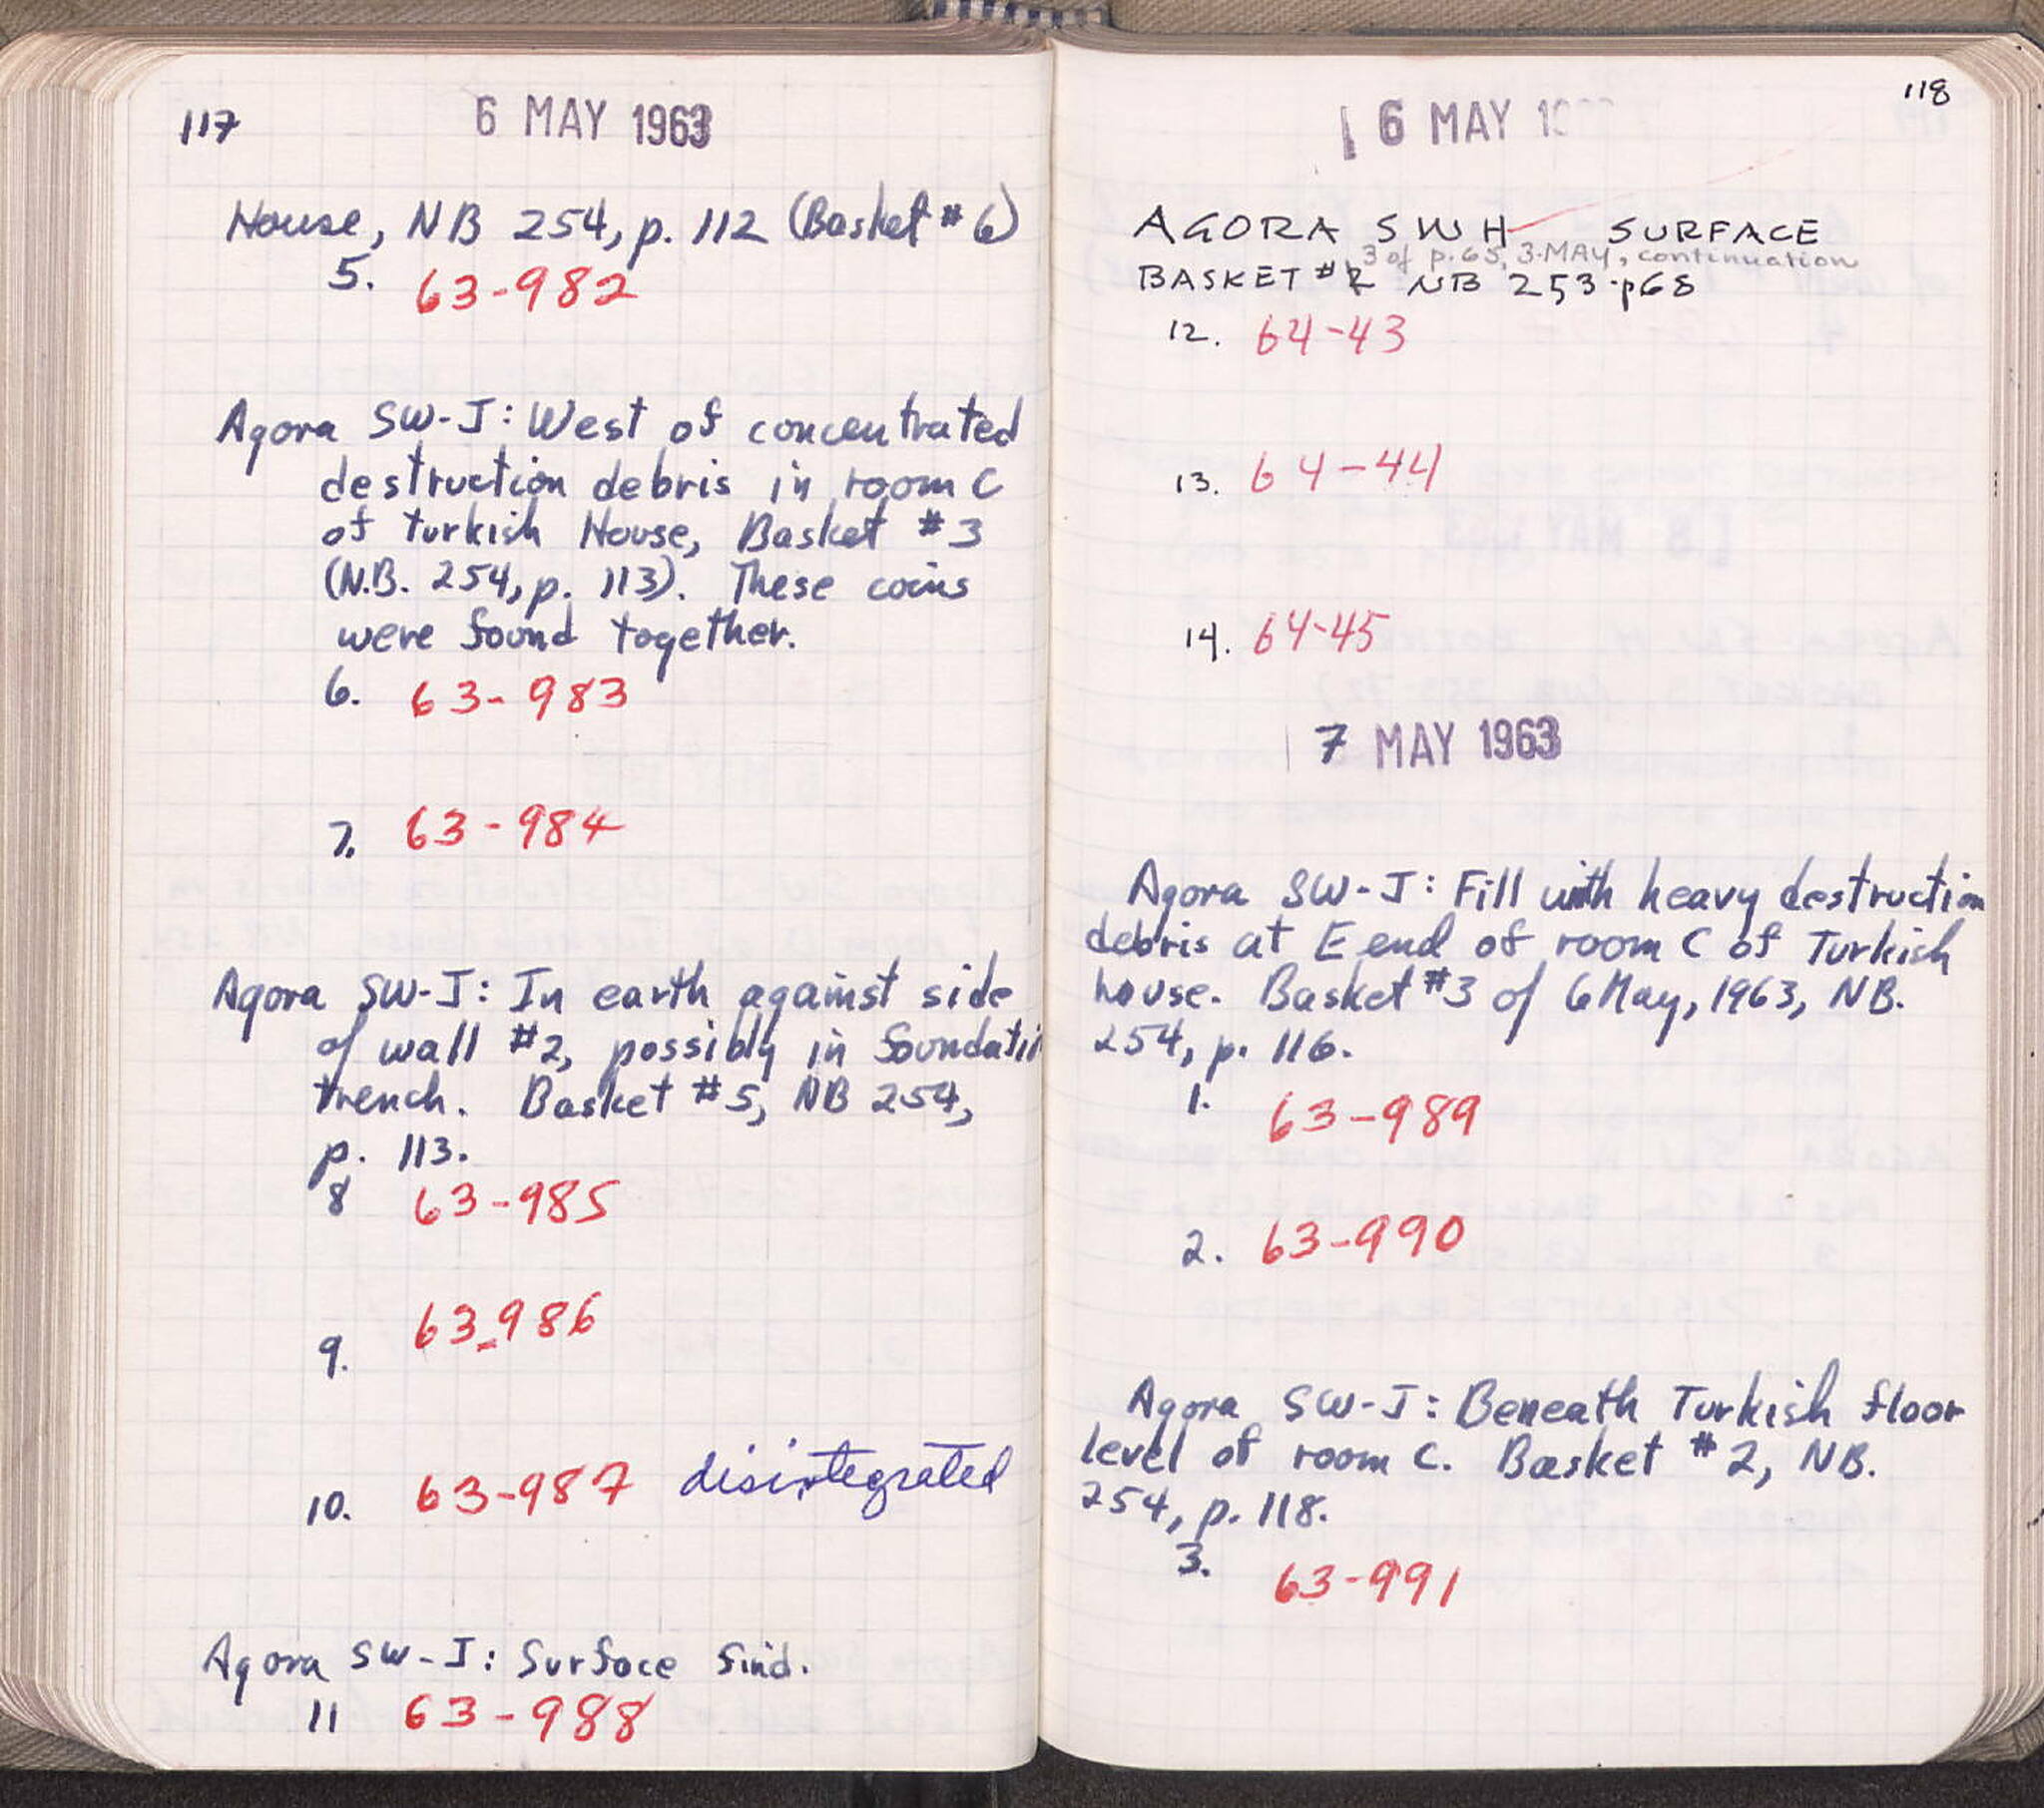 117
6 MAY 1963
House, NB 254, p. 112 (Basket # 6)
5. 63-982
Agora SW-J: West of concentrated
destruction debris in room C
of Turkish House, Basket #3
(N.B. 254, p. 113). These coins
were found together.
6. 63-983
7. 63-984
Agora SW-J: In earth against side
of wall #2, possibly in foundatin
trench. Basket #5, NB 254,
p. 113.
8 63-985
9. 63-986
10. 63-987 disintegrated
Agora SW-J: Surface find.
11 63-988
118
6 MAY
AGORA SWH SURFACE
3 of p. 65, 3-MAY, continuation
BASKET # NB 253-p68
12. 64-43
13. 64-44
14. 64-45
7 MAY 1963
Agora SW-J: Fill with heavy destruction
debris at E end of room C of Turkish
house. Basket #3 of 6 May, 1963, NB.
254, p. 116.
1. 63-989
2. 63-990
Agora SW-J: Beneath Turkish floor
level of room C. Basket #2, NB.
254, p. 118.
3. 63-991